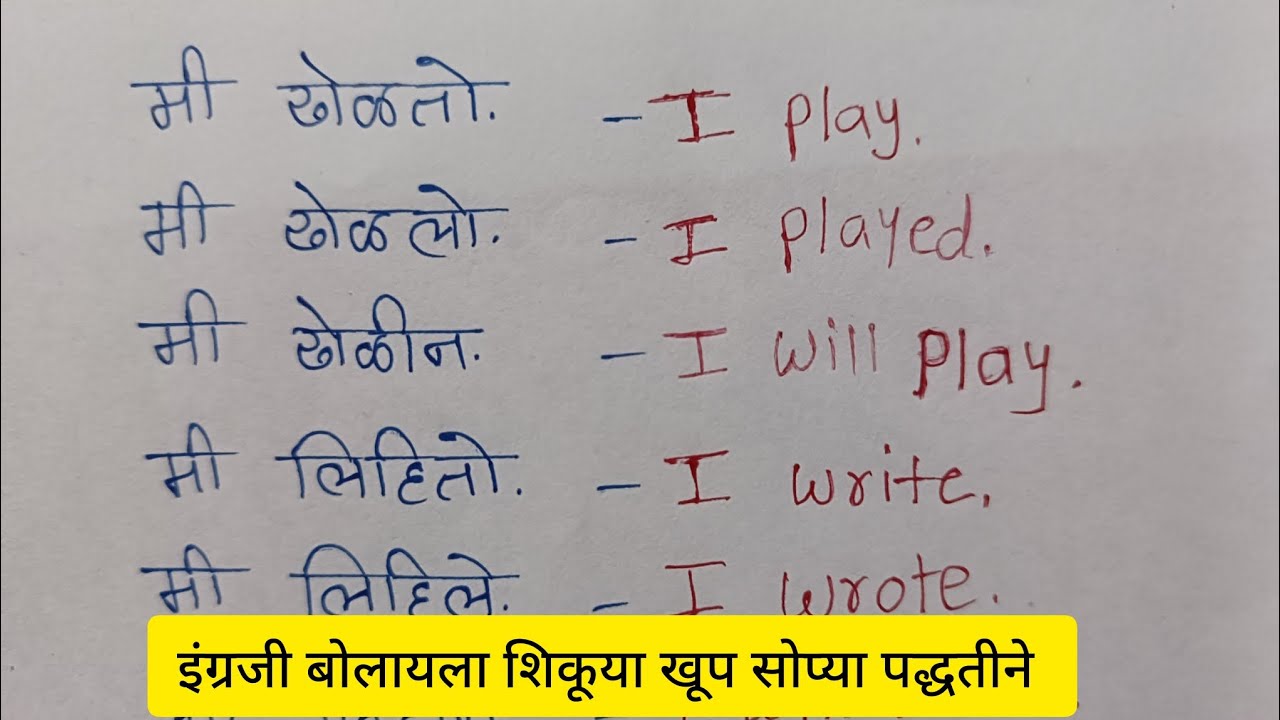 मी खेळतो. - I play.
मी खेळलो. - I played.
मी खेळीन. - I will play.
मी लिहितो. - I write.
मी लिहिले. - I wrote.
इंग्रजी बोलायला शिकूया खूप सोप्या पद्धतीने